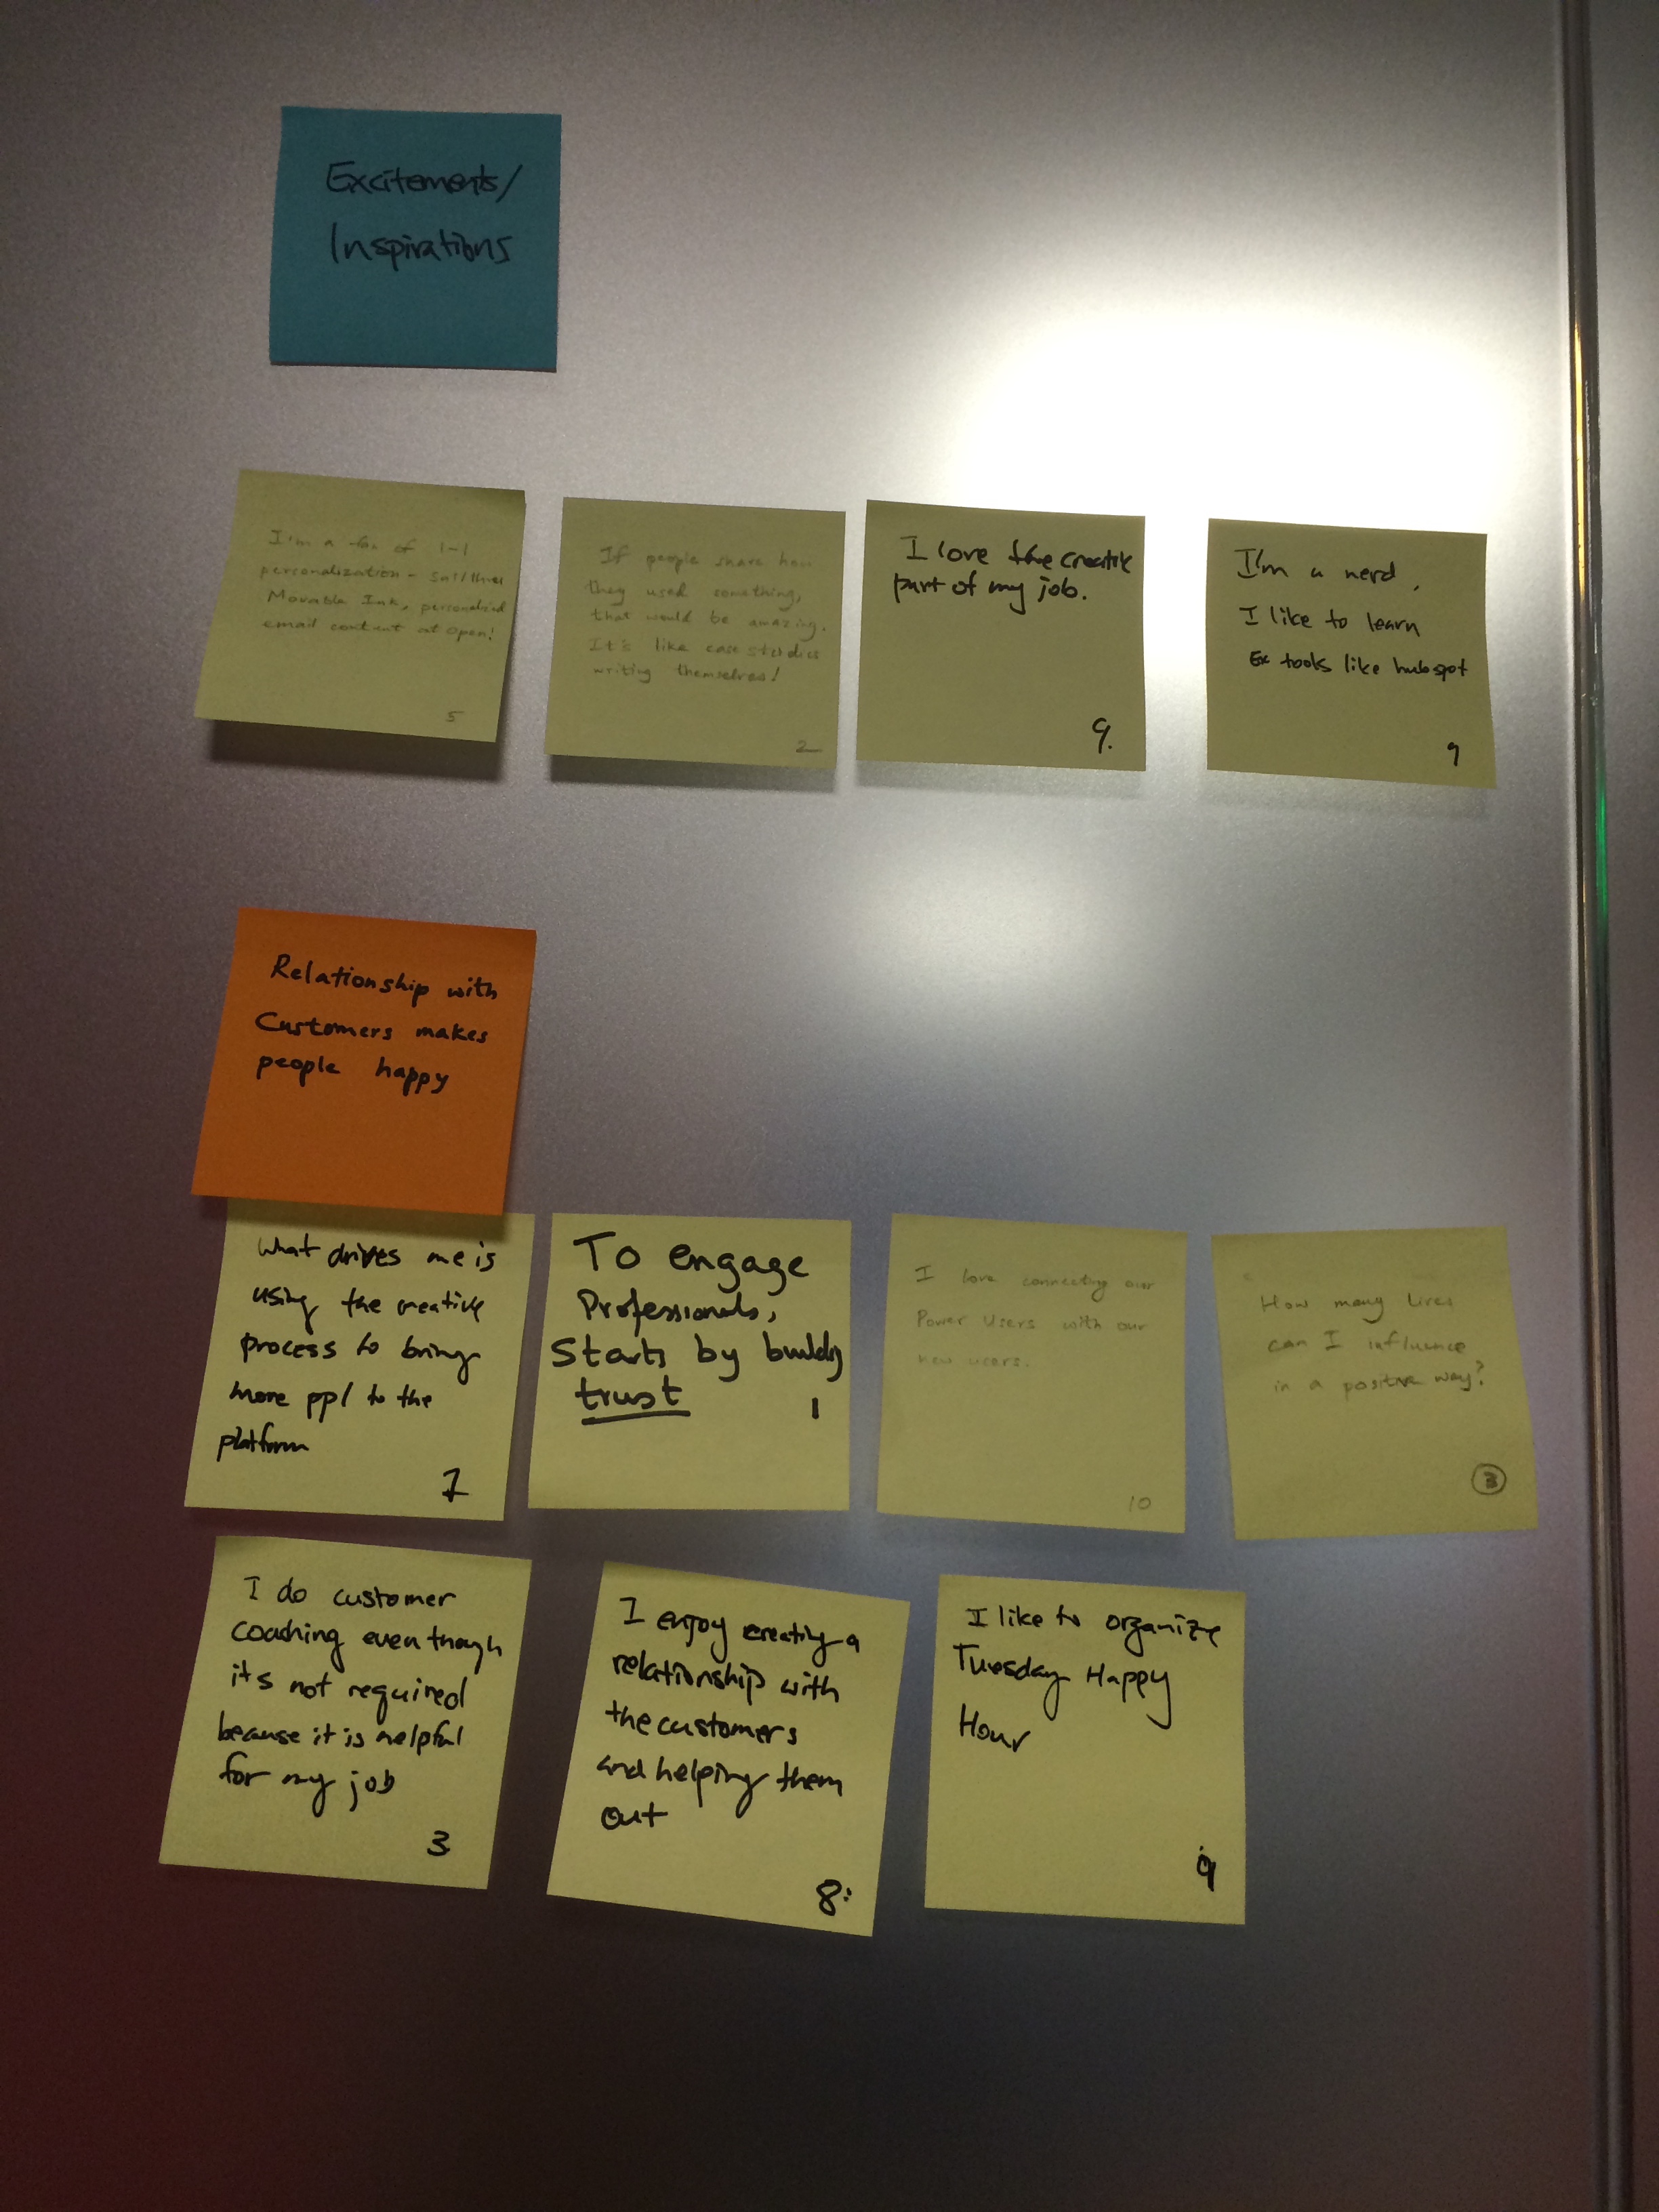 Excitements/
Inspirations
I'm a fan of 1-1
personalization -
Movable Ink, personalized
email content at open!
5
If people share how
they used something,
that would be amazing.
It's like case studies
writing themselves!
2
I love the creative
part of my job.
9.
I'm a nerd,
I like to learn
Ex tools like hubspot
9
Relationship with
Customers makes
people happy
What drives me is
using the creative
process to bring
more ppl to the
platform
7
To engage
Professionals,
Starts by building
trust
1
I love connecting our
Power Users with our
new users.
10
How many lives
can I influence
in a positive way?
3
I do customer
coaching even though
it's not required
because it is helpful
for my job
3
I enjoy creating a
relationship with
the customers
and helping them
out
8
I like to organize
Tuesday Happy
Hour
9